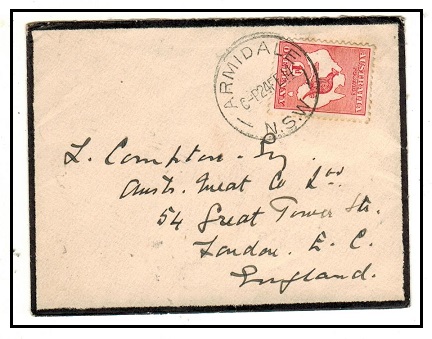 ARMIDALE
N.S.W
AUSTRALIA
PENNY
L. Compton. Esq
Austr. Meat Co Ltd
54 Great Tower Str.
London. E. C.
England.